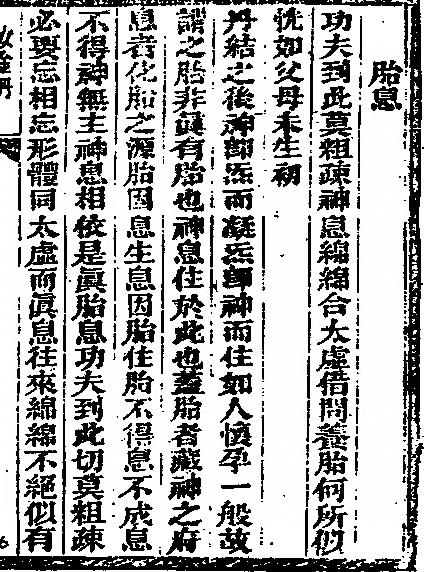 胎息
功夫到此莫粗疎神息綿綿合太虛借問養胎何所似
恍如父母未生初
丹結之後神卽炁而凝炁卽神而住如人懷孕一般故
謂之胎非眞有胎也神息住於此也蓋胎者藏神之府
息者化胎之源胎因息生息因胎住胎不得息不成息
不得神無主神息相依是眞胎息功夫到此切莫粗疎
必要忘相忘形體同太虛而眞息往來綿綿不絕似有